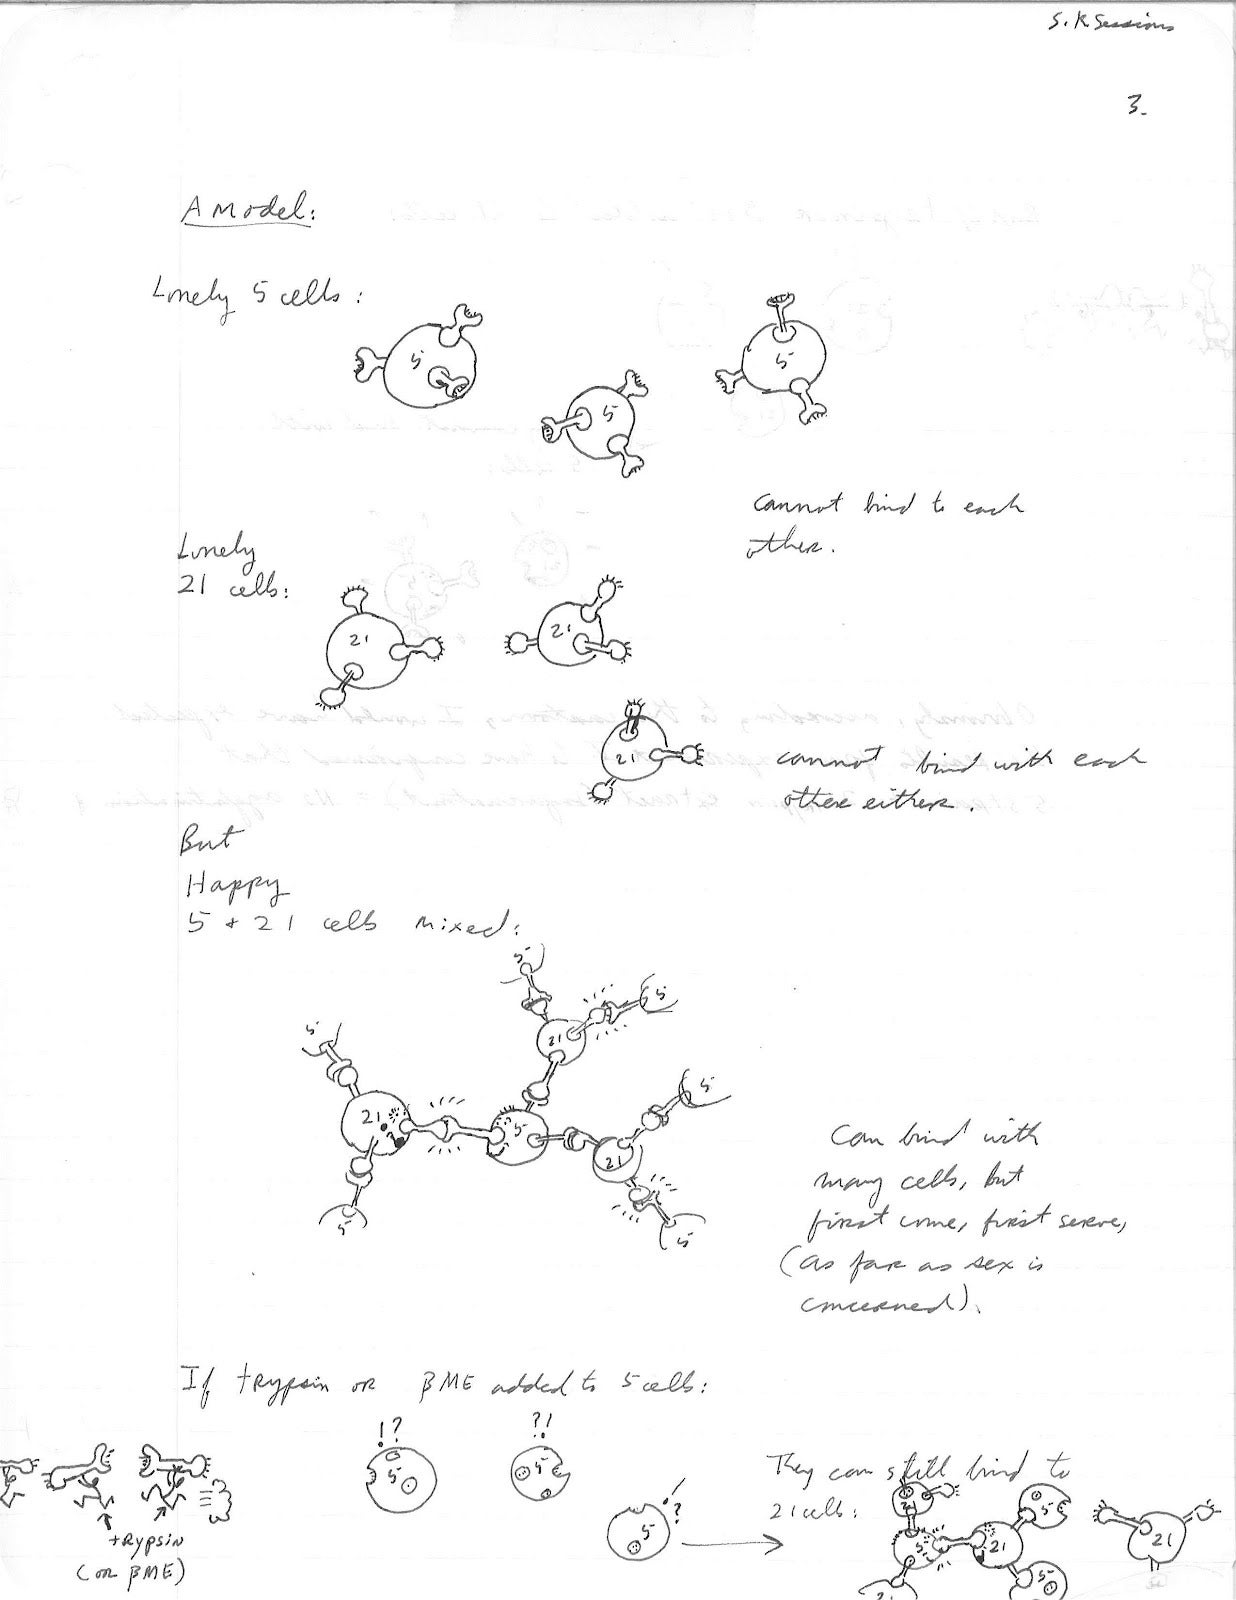 S.K Sessions
3.
A Model:
Lonely 5 cells:
5
5
5
cannot bind to each
other.
Lonely
21 cells:
21
21
21
cannot bind with each
other either.
But
Happy
5 + 21 cells mixed:
5
5
5
21
5
21
5
21
5
5
Can bind with
many cells, but
first come, first serve,
(as far as sex is
concerned).
If trypsin or βME added to 5 cells:
!?
?!
5
5
!
?
5
trypsin
(or βME)
They can still bind to
21 cells:
21
5
5
21
21
5
21